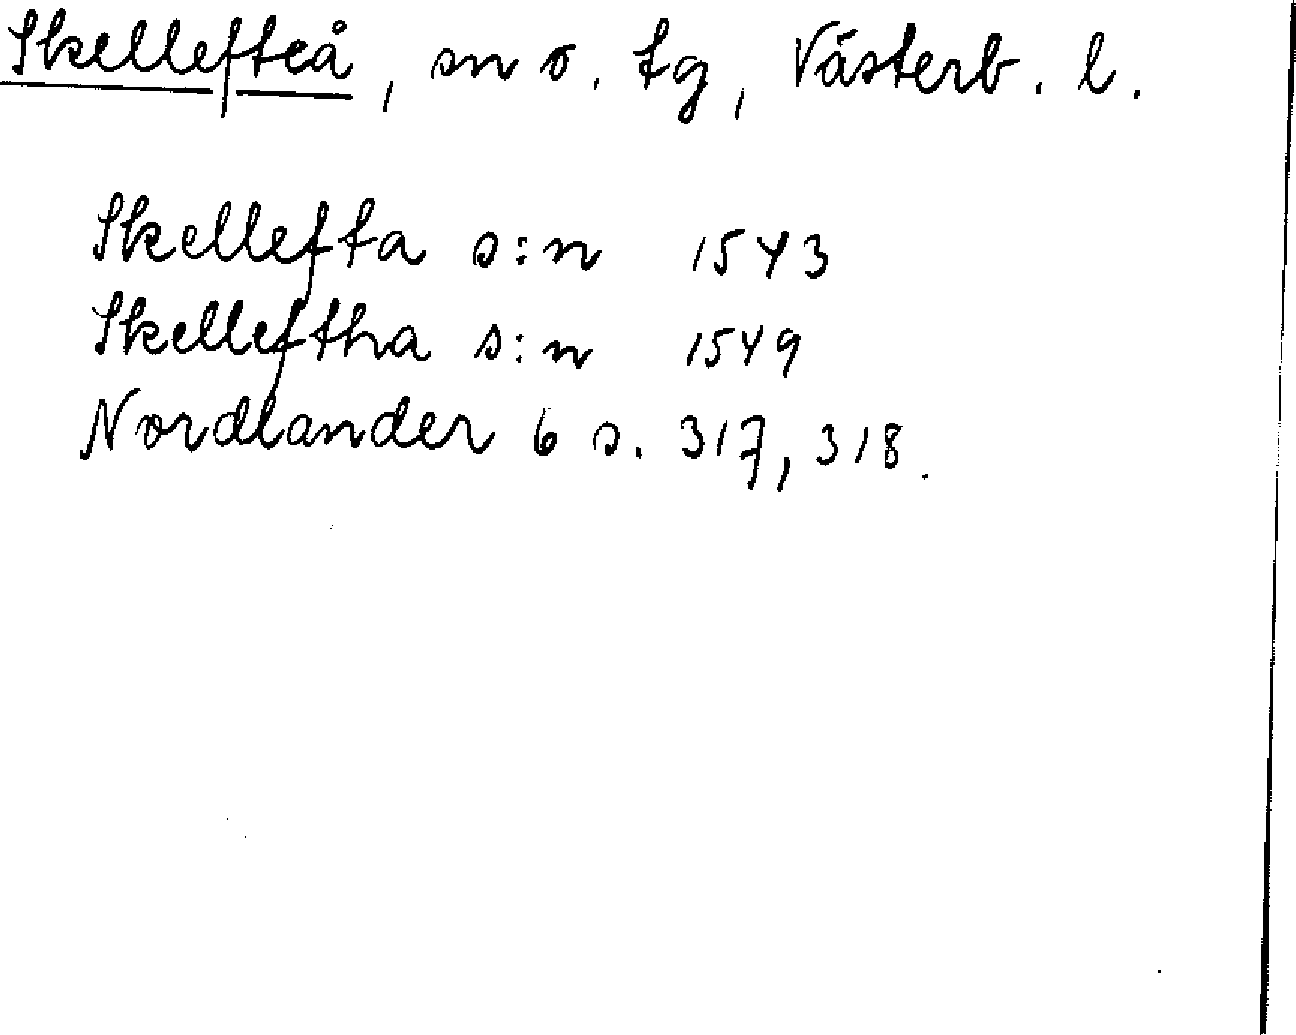 Skellefteå, sn o. tg, Västerb. l.
Skellefta s:n 1543
Skelleftha s:n 1549
Nordlander 6 s. 317, 318.